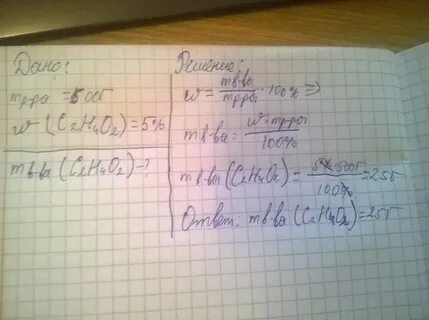 Дано:
mр-ра = 500г
w (C2H4O2) = 5%
mв-ва (C2H4O2) - ?
Решение:
w = mв-ва / mр-ра · 100% =>
mв-ва = w · mр-ра / 100%
mв-ва (C2H4O2) = 5% · 500г / 100% = 25г
Ответ: mв-ва (C2H4O2) = 25г